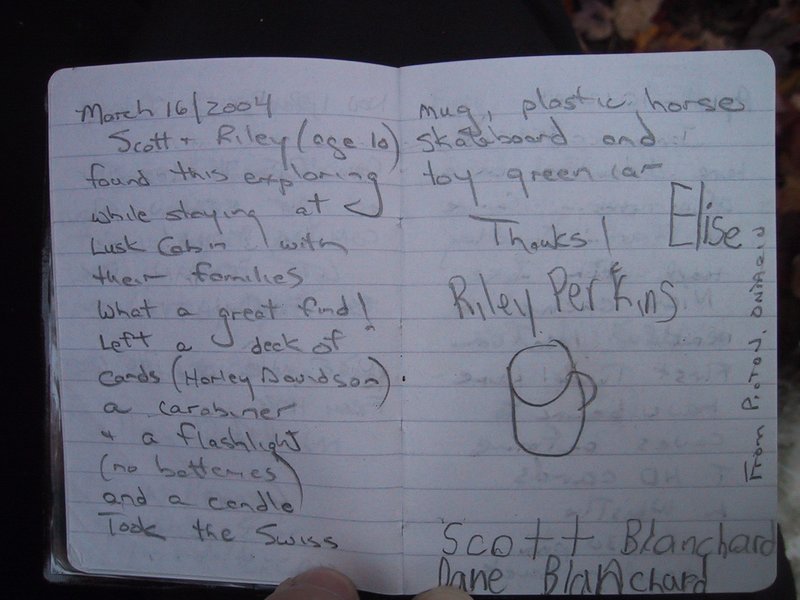 March 16/2004
Scott + Riley (age 10)
found this exploring
while staying at
Lusk Cabin with
their families
What a great find!
Left a deck of
cards (Harley Davidson)
a carabiner
+ a flashlight
(no batteries)
and a candle
Took the Swiss
mug, plastic horses
skateboard and
toy green car
Thanks!
Elise
Riley Perkins
Scott Blanchard
Dane Blanchard
From Picton, Ontario